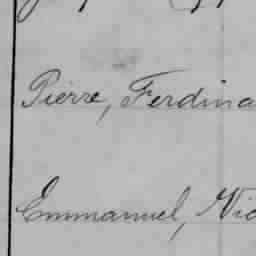 Pierre, Ferdina
Emmanuel, Nic